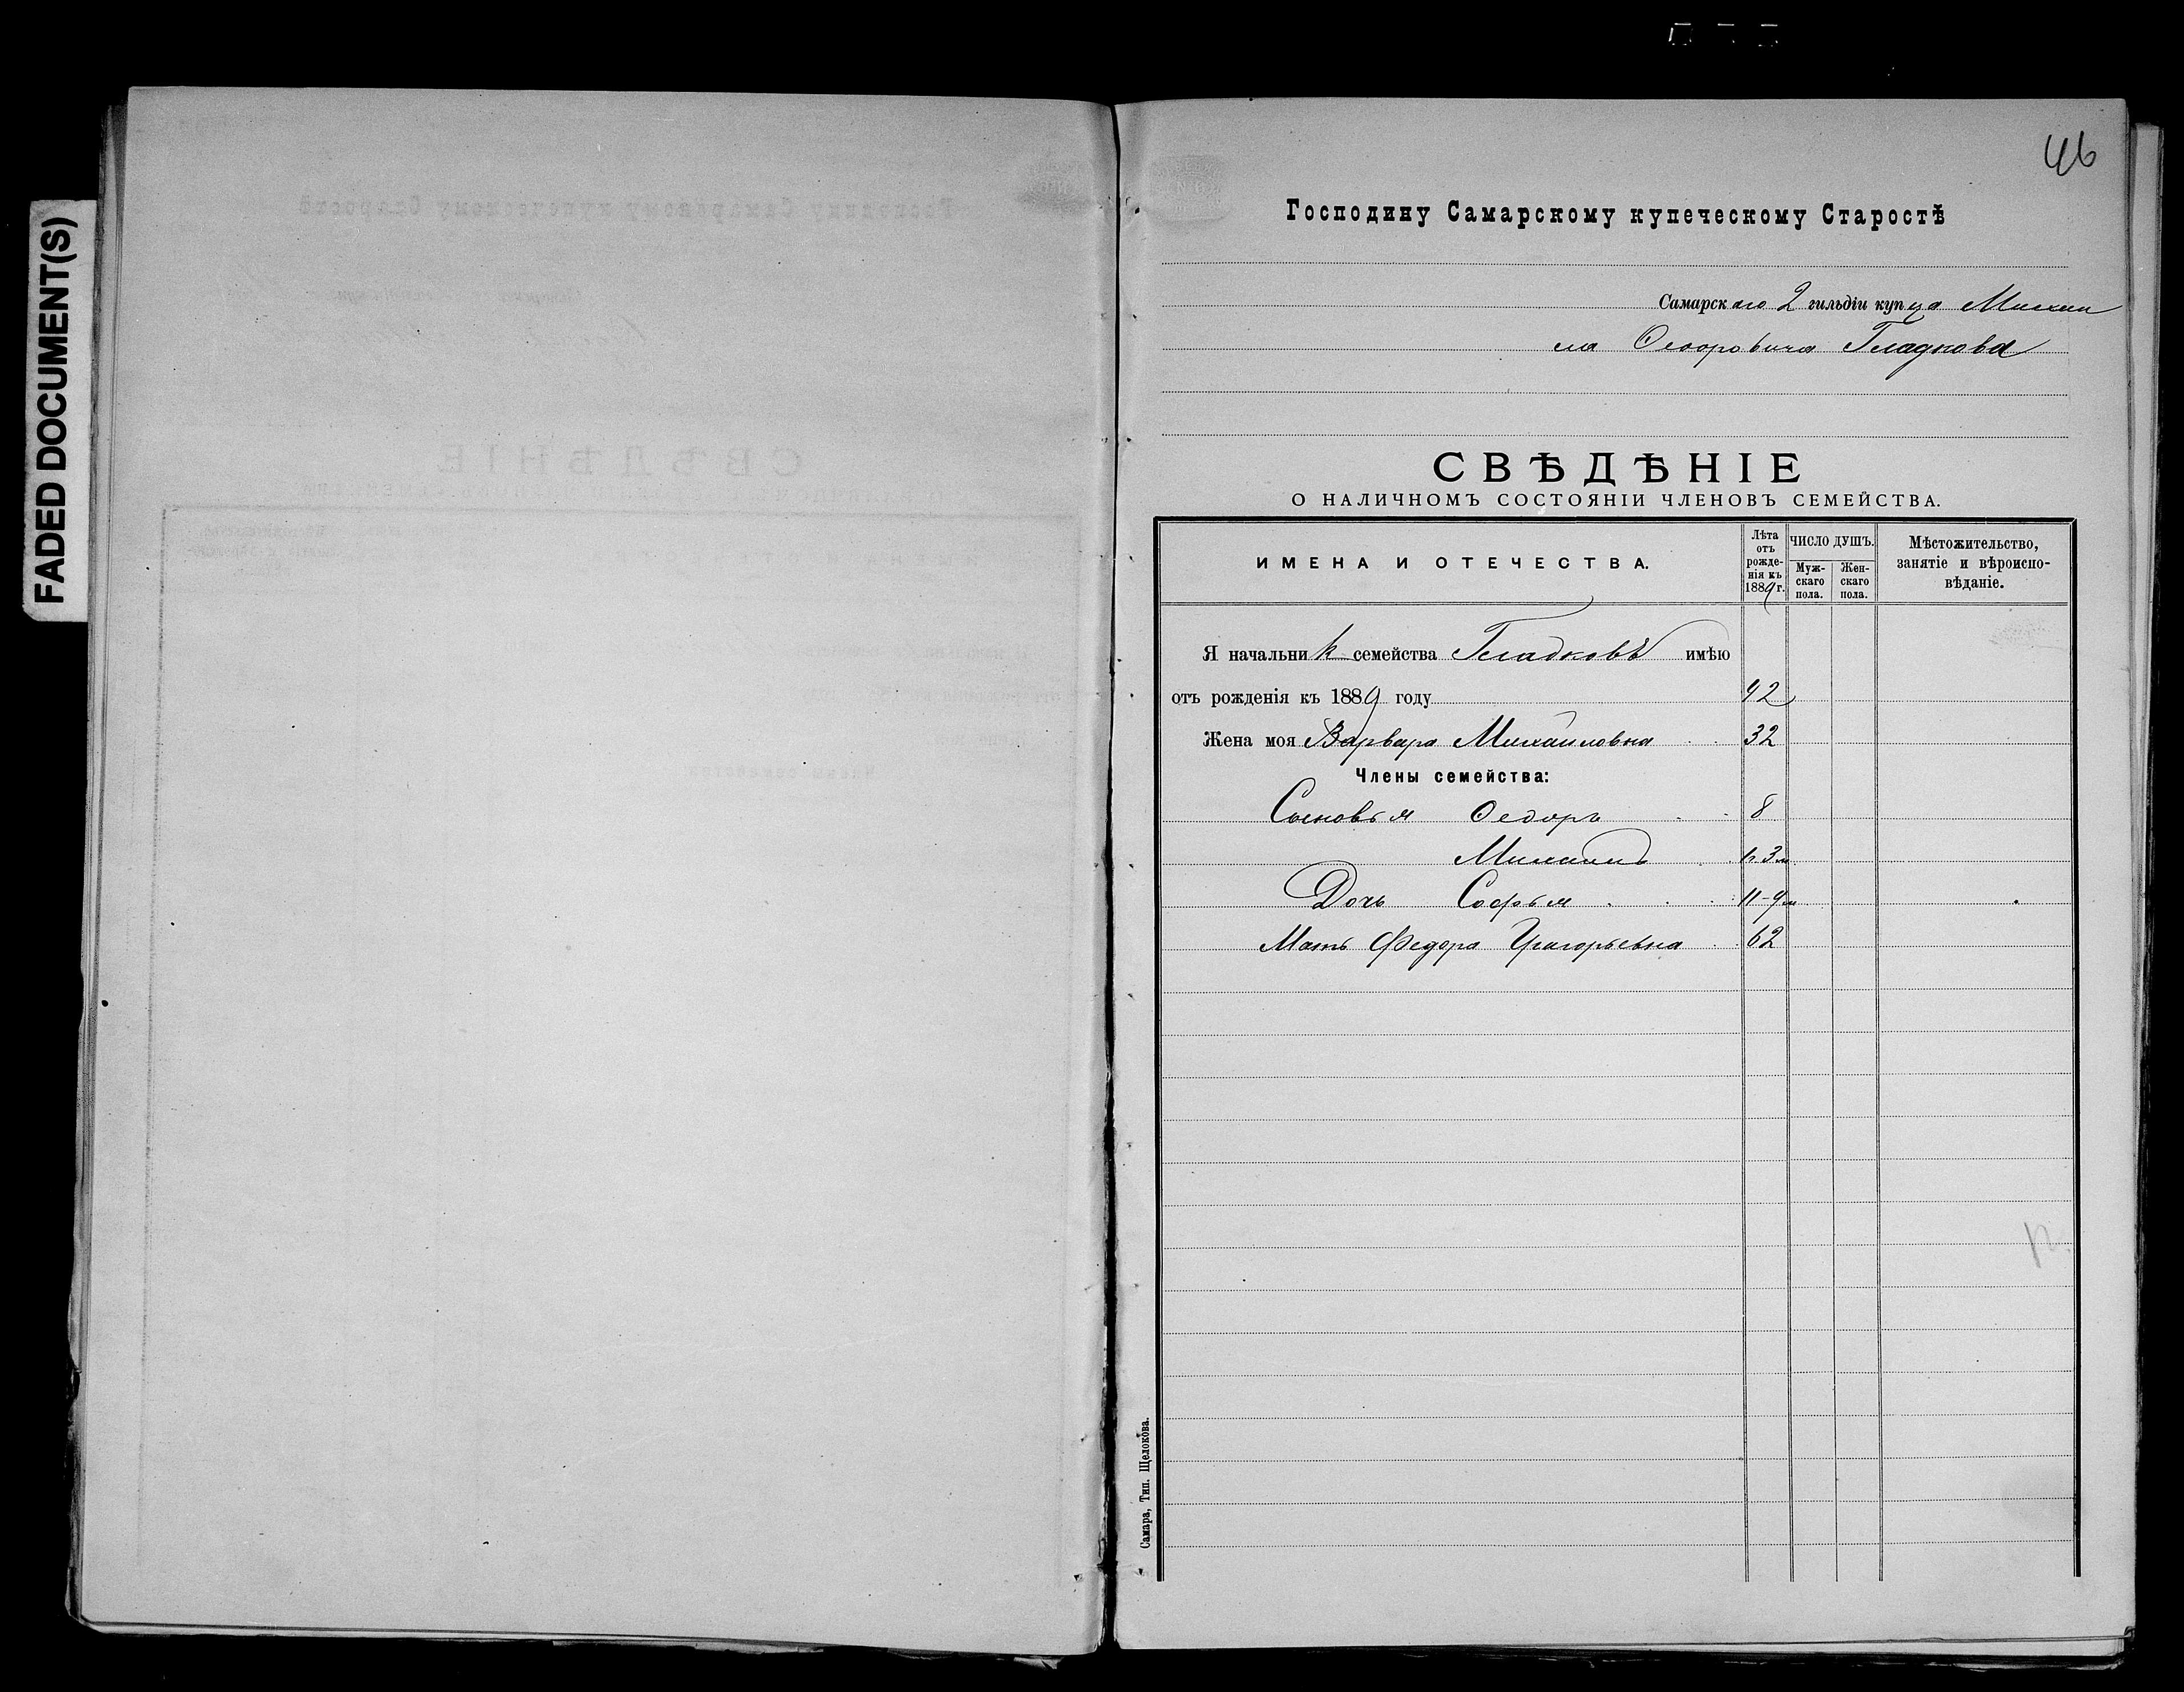 FADED DOCUMENT(S)
46
Господину Самарскому купеческому Старостѣ
Самарскаго 2 гильдіи купца Михаи
ла Ѳедоровича Гладкова
СВѢДѢНІЕ
О НАЛИЧНОМЪ СОСТОЯНІИ ЧЛЕНОВЪ СЕМЕЙСТВА.
ИМЕНА И ОТЕЧЕСТВА.
Лѣта отъ рожденія къ 1889 г.
ЧИСЛО ДУШЪ.
Мужскаго пола.
Женскаго пола.
Мѣстожительство,
занятіе и вѣроиспо-
вѣданіе.
Я начальникъ семейства Гладковъ имѣю
отъ рожденія къ 1889 году 42
Жена моя Варвара Михаиловна 32
Члены семейства:
Сыновья Ѳедоръ 8
Михаилъ 3 м
Дочь Софья 11-9 м
Мать Федора Григорьевна 62
Самара, Тип. Щелокова.